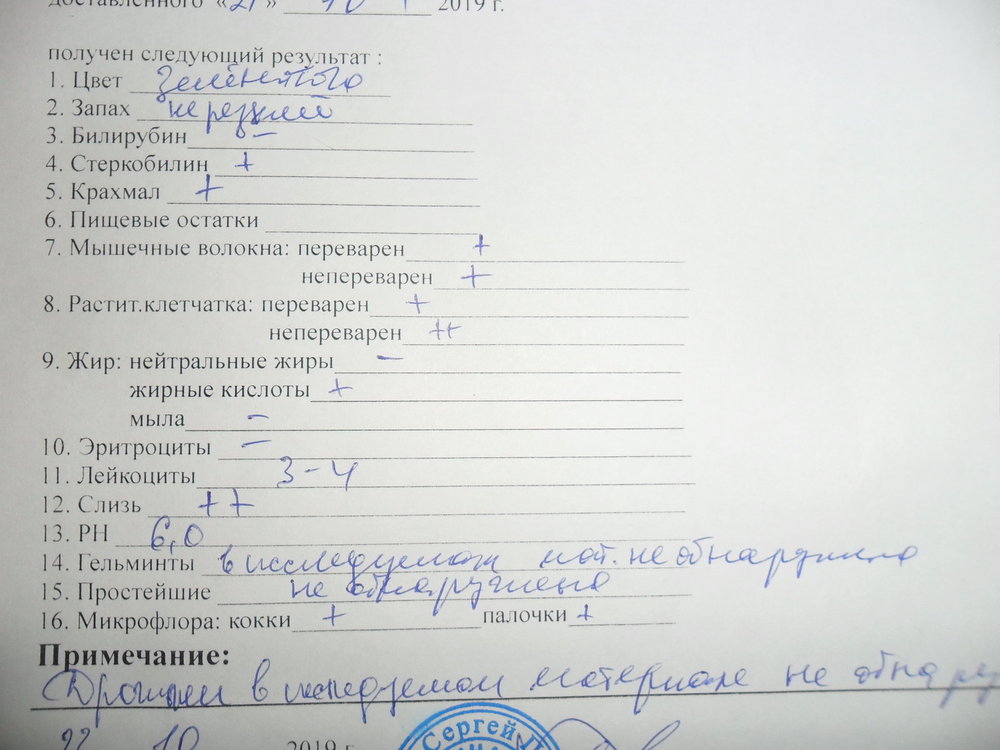 доставленного «21» 10 2019 г.
получен следующий результат :
1. Цвет зеленятого
2. Запах не резкий
3. Билирубин –
4. Стеркобилин +
5. Крахмал +
6. Пищевые остатки
7. Мышечные волокна: переварен +
непереварен +
8. Растит.клетчатка: переварен +
непереварен ++
9. Жир: нейтральные жиры –
жирные кислоты +
мыла –
10. Эритроциты –
11. Лейкоциты 3-4
12. Слизь ++
13. РН 6,0
14. Гельминты в исследуемом мат. не обнаружено
15. Простейшие не обнаружено
16. Микрофлора: кокки + палочки +
Примечание:
Дрожжи в исследуемом материале не обнару
22 10 2019 г.
Сергей П